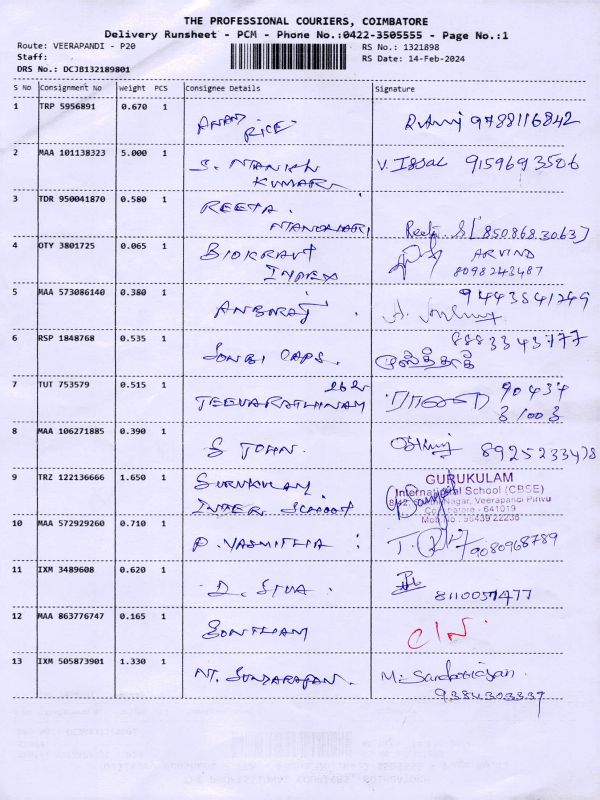 THE PROFESSIONAL COURIERS, COIMBATORE
Delivery Runsheet - PCM - Phone No.:0422-3505555 - Page No.:1
Route: VEERAPANDI - P20
RS No.: 1321898
Staff:
RS Date: 14-Feb-2024
DRS No.: DCJB132189801
S No Consignment No Weight PCS Consignee Details Signature
1 TRP 5956891 0.670 1
ANAND
RICE
9788116842
2 MAA 101138323 5.000 1
S.
KUMAR
V. 9159693506
3 TDR 950041870 0.580 1
REETA
[8508683063]
4 OTY 3801725 0.065 1
INDEX
ARVIND
8098243487
5 MAA 573086140 0.380 1
ANBURAJ
9443541249
6 RSP 1848768 0.535 1
CAPS.
8883343777
7 TUT 753579 0.515 1
262
JEEVARATHINAM
90434
31003
8 MAA 106271885 0.390 1
S JOHN.
8925233478
9 TRZ 122136666 1.650 1
GURUKULAM
INTER SCHOOL
GURUKULAM
International School (CBSE)
Nagar, Veerapandi Pirivu
Coimbatore - 641019
10 MAA 572929260 0.710 1
P. YASMITHA
9080968789
11 IXM 3489608 0.620 1
D. SIVA.
8110057477
12 MAA 863776747 0.165 1
SONTHAM
C/N.
13 IXM 505873901 1.330 1
SUNDARAJAN.
9384303337